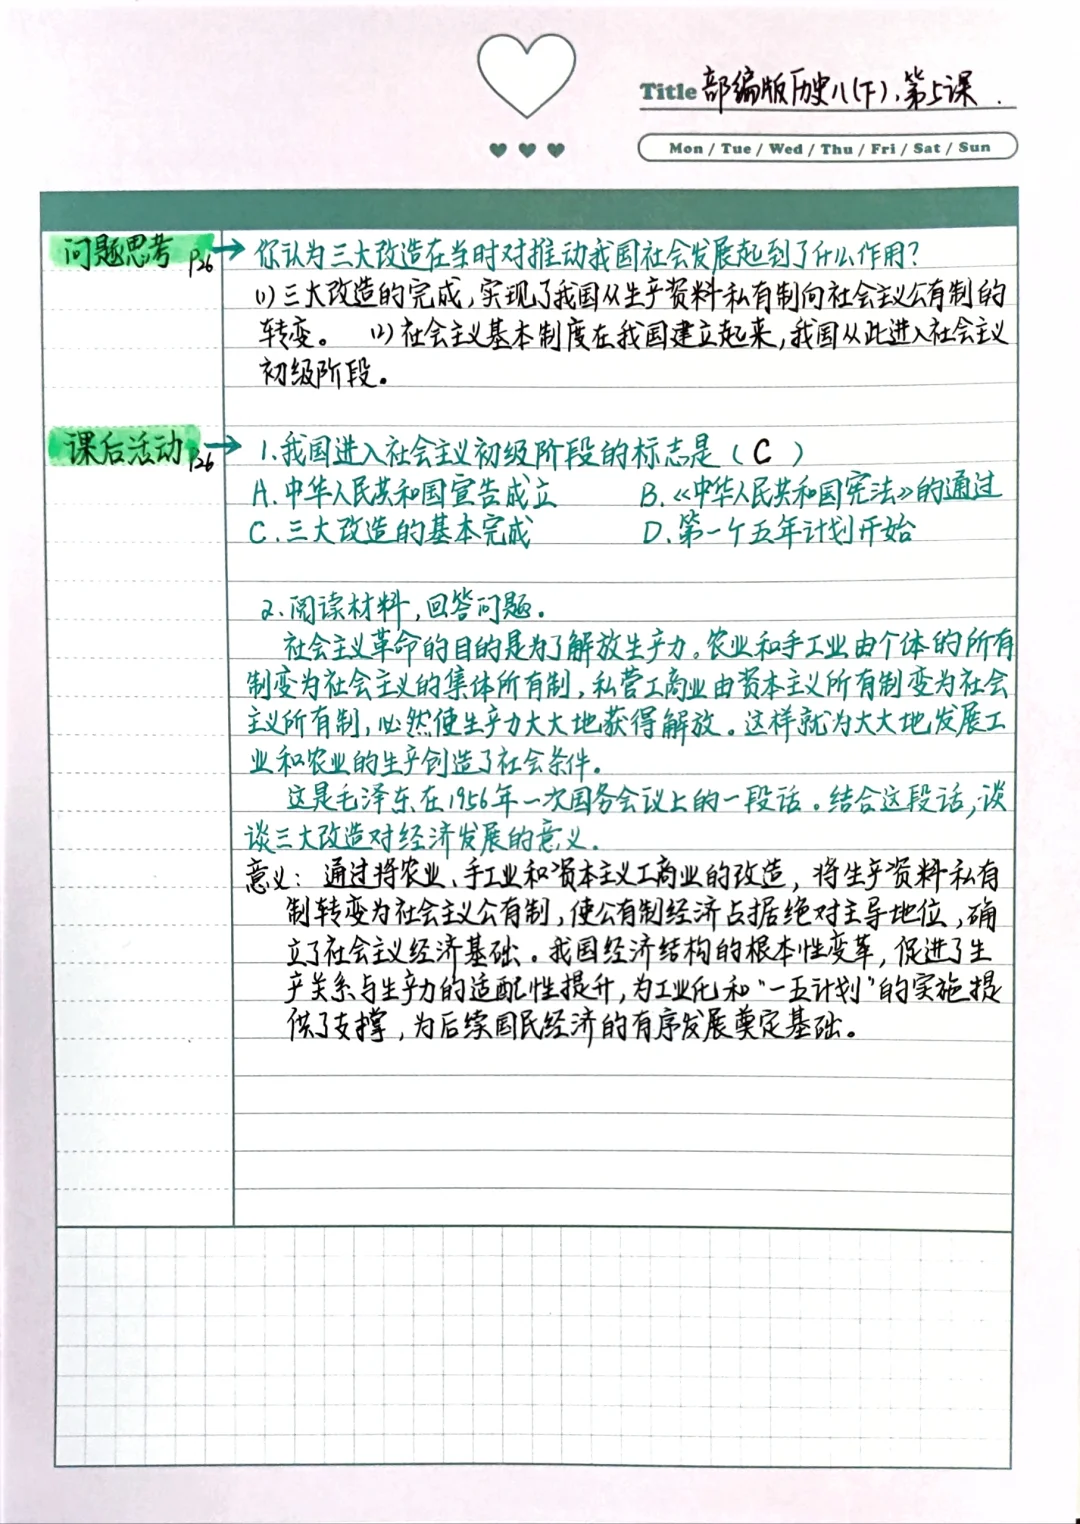 Title 部编版历史八(下).第5课.
Mon / Tue / Wed / Thu / Fri / Sat / Sun
问题思考 P26 → 你认为三大改造在当时对推动我国社会发展起到了什么作用?
(1)三大改造的完成,实现了我国从生产资料私有制向社会主义公有制的
转变。 (2)社会主义基本制度在我国建立起来,我国从此进入社会主义
初级阶段。
课后活动 P26 → 1.我国进入社会主义初级阶段的标志是( C )
A.中华人民共和国宣告成立 B.《中华人民共和国宪法》的通过
C.三大改造的基本完成 D.第一个五年计划开始
2.阅读材料,回答问题.
社会主义革命的目的是为了解放生产力。农业和手工业由个体的所有
制变为社会主义的集体所有制,私营工商业由资本主义所有制变为社会
主义所有制,必然使生产力大大地获得解放。这样就为大大地发展工
业和农业的生产创造了社会条件。
这是毛泽东在1956年一次国务会议上的一段话。结合这段话,谈
谈三大改造对经济发展的意义.
意义:通过将农业、手工业和资本主义工商业的改造,将生产资料私有
制转变为社会主义公有制,使公有制经济占据绝对主导地位,确
立了社会主义经济基础。我国经济结构的根本性变革,促进了生
产关系与生产力的适配性提升,为工业化和“一五计划”的实施提
供了支撑,为后续国民经济的有序发展奠定基础。